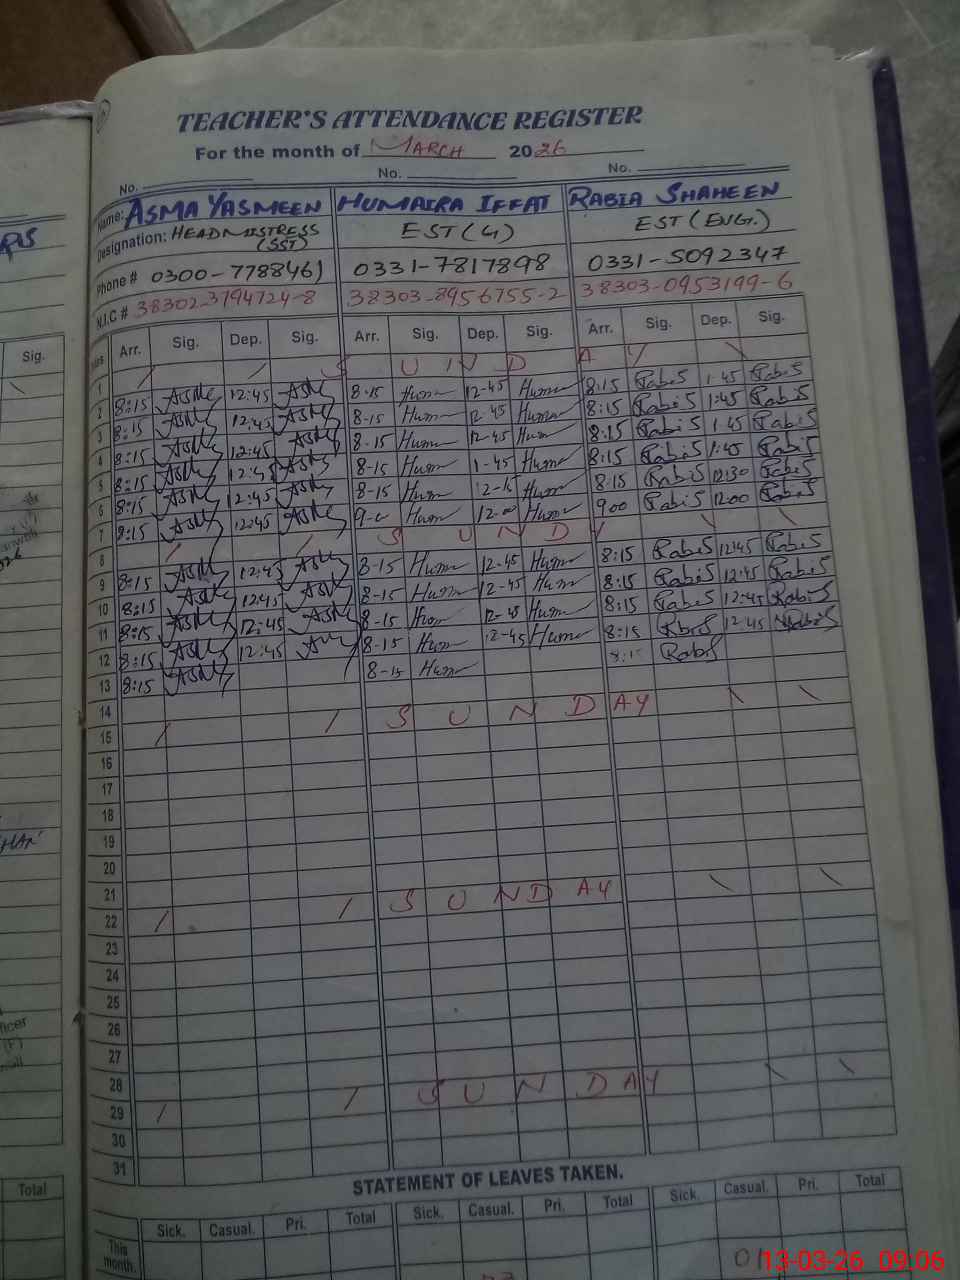 TEACHER'S ATTENDANCE REGISTER
For the month of MARCH 2026
No. No. No.
Name: ASMA YASMEEN HUMAIRA IFFAT RABIA SHAHEEN
Designation: HEADMISTRESS (SST) EST (G) EST (ENG.)
Phone # 0300-7788461 0331-7817898 0331-5092347
N.I.C # 38302-3794724-8 38303-8956755-2 38303-0953199-6
Sig. Arr. Sig. Dep. Sig. Arr. Sig. Dep. Sig. Arr. Sig. Dep. Sig.
1 S U N D A Y
2 8:15 Asma 12:45 Asma 8-15 Hum 12-45 Hum 8:15 RabiS 1:45 RabiS
3 8:15 Asma 12:45 Asma 8-15 Hum 12-45 Hum 8:15 RabiS 1:45 RabiS
4 8:15 Asma 12:45 Asma 8-15 Hum 12-45 Hum 8:15 RabiS 1:45 RabiS
5 8:15 Asma 12:45 Asma 8-15 Hum 1-45 Hum 8:15 RabiS 1:45 RabiS
6 8:15 Asma 12:45 Asma 8-15 Hum Hum 8:15 RabiS 12:30 RabiS
7 8:15 Asma 12:45 Asma Hum 12-00 Hum 9:00 RabiS 12:00 RabiS
8 S U N D Y
9 8:15 Asma 12:45 Asma 8-15 Hum 12-45 Hum 8:15 RabiS 12:45 RabiS
10 8:15 Asma 12:45 Asma 8-15 Hum 12-45 Hum 8:15 RabiS 12:45 RabiS
11 8:15 Asma 12:45 Asma 8-15 Hum 12-45 Hum 8:15 RabiS 12:45 RabiS
12 8:15 Asma 12:45 8-15 Hum 12-45 Hum 8:15 RabiS 12:45 RabiS
13 8:15 Asma 8-15 Hum 8:15 RabiS
14
15 S U N D A Y
16
17
18
19
20
21
22 S U N D A Y
23
24
25
26
27
28
29 S U N D A Y
30
31
STATEMENT OF LEAVES TAKEN.
Total Sick. Casual. Pri. Total Sick. Casual. Pri. Total Sick. Casual. Pri. Total
This month. 01
13-03-26 09:06